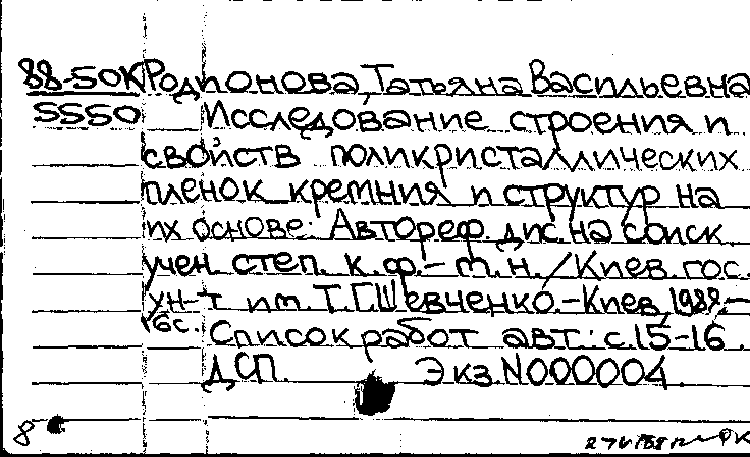 88-50К Родионова, Татьяна Васильевна
5550 Исследование строения и
свойств поликристаллических
пленок кремния и структур на
их основе: Автореф. дис. на соиск.
учен. степ. к.ф.-м.н. / Киев. гос.
ун-т им. Т.Г. Шевченко. - Киев, 1988. -
16с.
Список работ авт.: с. 15-16.
ДСП. Экз. N000004.
8